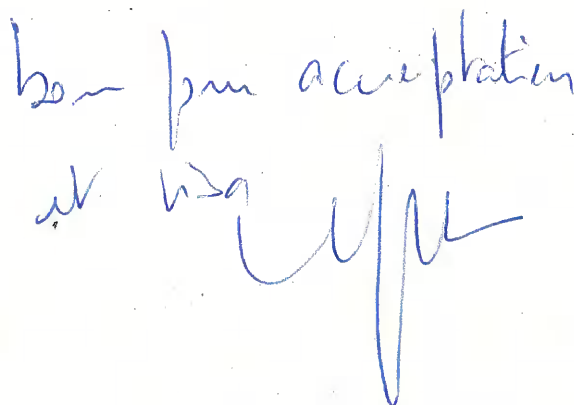 bon pour acceptation
et visa